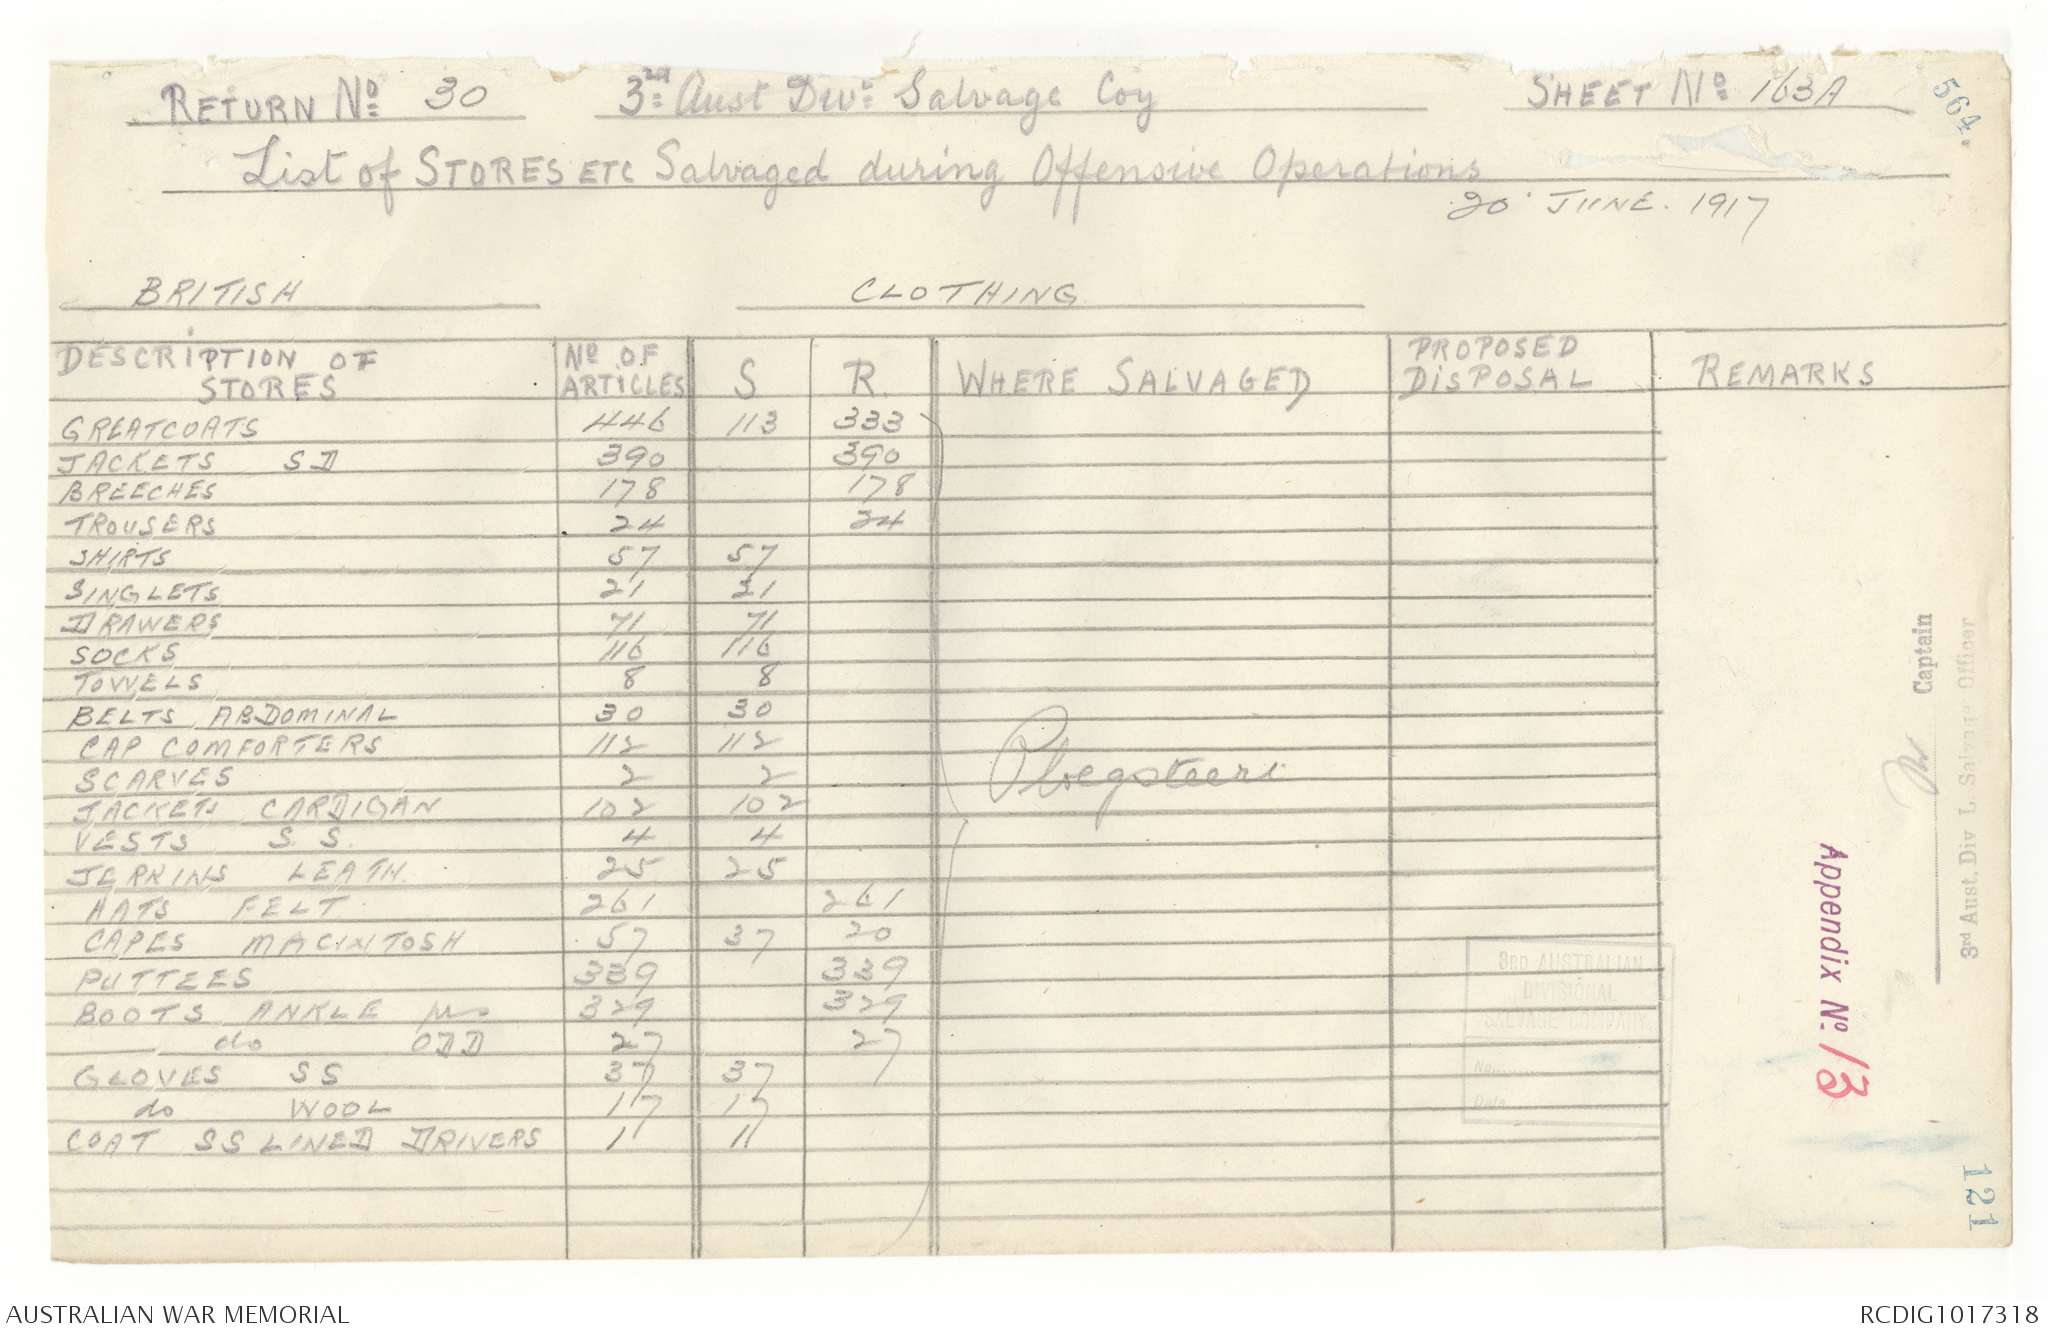 RETURN No 30 3rd Aust Divl Salvage Coy SHEET No 163A
564.
List of STORES ETC Salvaged during Offensive Operations
20 JUNE. 1917
BRITISH CLOTHING
DESCRIPTION OF STORES No OF ARTICLES S R. WHERE SALVAGED PROPOSED DISPOSAL REMARKS
GREATCOATS 446 113 333
JACKETS SD 390 390
BREECHES 178 178
TROUSERS 24 24
SHIRTS 57 57
SINGLETS 21 21
DRAWERS 71 71
SOCKS 116 116
TOWELS 8 8
BELTS ABDOMINAL 30 30
CAP COMFORTERS 112 112
SCARVES 2 2
Ploegsteert
JACKETS CARDIGAN 102 102
VESTS S.S. 4 4
JERKINS LEATH. 25 25
HATS FELT 261 261
CAPES MACINTOSH 57 37 20
PUTTEES 339 339
BOOTS ANKLE prs 329 329
do ODD 27 27
GLOVES SS 37 37
do WOOL 17 17
COAT SS LINED DRIVERS 1 11
3RD AUSTRALIAN
DIVISIONAL
SALVAGE COMPANY.
No.
Date
Appendix No. 13
Captain
3rd Aust. Div l. Salvage Officer
121
AUSTRALIAN WAR MEMORIAL RCDIG1017318